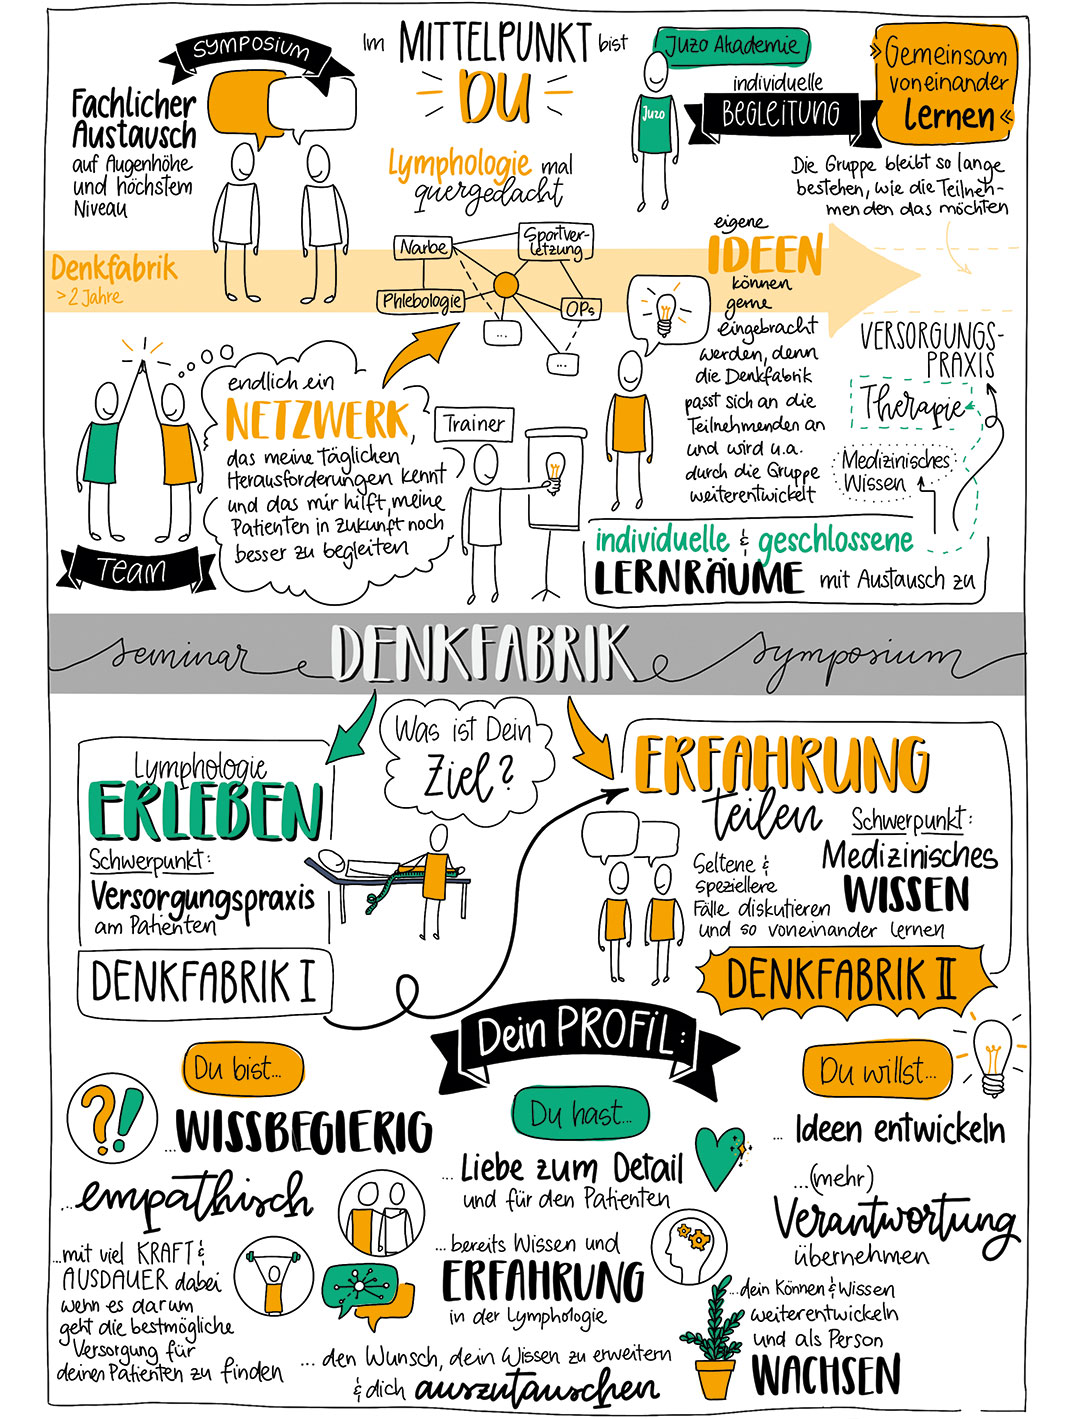 SYMPOSIUM
Fachlicher
Austausch
auf Augenhöhe
und höchstem
Niveau
Im MITTELPUNKT bist
DU
Lymphologie mal
quergedacht
Juzo Akademie
Juzo
individuelle
BEGLEITUNG
»Gemeinsam
voneinander
lernen«
Die Gruppe bleibt so lange
bestehen, wie die Teilneh-
menden das möchten
Denkfabrik
> 2 Jahre
Narbe
Sportver-
letzung
Phlebologie
OPs
...
...
eigene
IDEEN
können
gerne
eingebracht
werden, denn
die Denkfabrik
passt sich an die
Teilnehmenden an
und wird u.a.
durch die Gruppe
weiterentwickelt
VERSORGUNGS-
PRAXIS
Therapie
Medizinisches
Wissen
TEAM
endlich ein
NETZWERK,
das meine Täglichen
Herausforderungen kennt
und das mir hilft, meine
Patienten in Zukunft noch
besser zu begleiten
Trainer
individuelle & geschlossene
LERNRÄUME mit Austausch zu
seminar DENKFABRIK symposium
Was ist Dein
Ziel?
Lymphologie
ERLEBEN
Schwerpunkt:
Versorgungspraxis
am Patienten
DENKFABRIK I
ERFAHRUNG
teilen
Schwerpunkt:
Medizinisches
WISSEN
Seltene &
speziellere
Fälle diskutieren
und so voneinander lernen
DENKFABRIK II
Dein PROFIL:
Du bist...
?!
...WISSBEGIERIG
...empathisch
...mit viel KRAFT &
AUSDAUER dabei
wenn es darum
geht die bestmögliche
Versorgung für
deinen Patienten zu finden
Du hast...
... Liebe zum Detail
und für den Patienten
...bereits Wissen und
ERFAHRUNG
in der Lymphologie
... den Wunsch, dein Wissen zu erweitern
& dich auszutauschen
Du willst...
... Ideen entwickeln
...(mehr)
Verantwortung
übernehmen
...dein Können & Wissen
weiterentwickeln
und als Person
WACHSEN